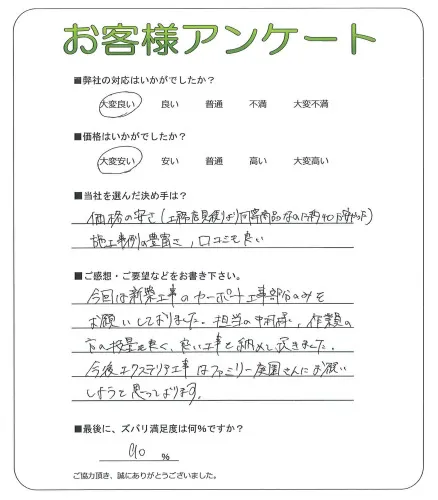 お客様アンケート
■弊社の対応はいかがでしたか？
大変良い 良い 普通 不満 大変不満
■価格はいかがでしたか？
大変安い 安い 普通 高い 大変高い
■当社を選んだ決め手は？
価格の安さ（工務店見積りより同等商品なのに約40万安かった）
施工事例の豊富さ、口コミも良い
■ご感想・ご要望などをお書き下さい。
今回は新築工事のカーポート工事部分のみを
お願いしておりました。担当の中村様、作業員の
方の技量も良く、良い工事を納めて頂きました。
今後エクステリア工事はファミリー庭園さんにお願い
しようと思っております。
■最後に、ズバリ満足度は何%ですか？
90 %
ご協力頂き、誠にありがとうございました。